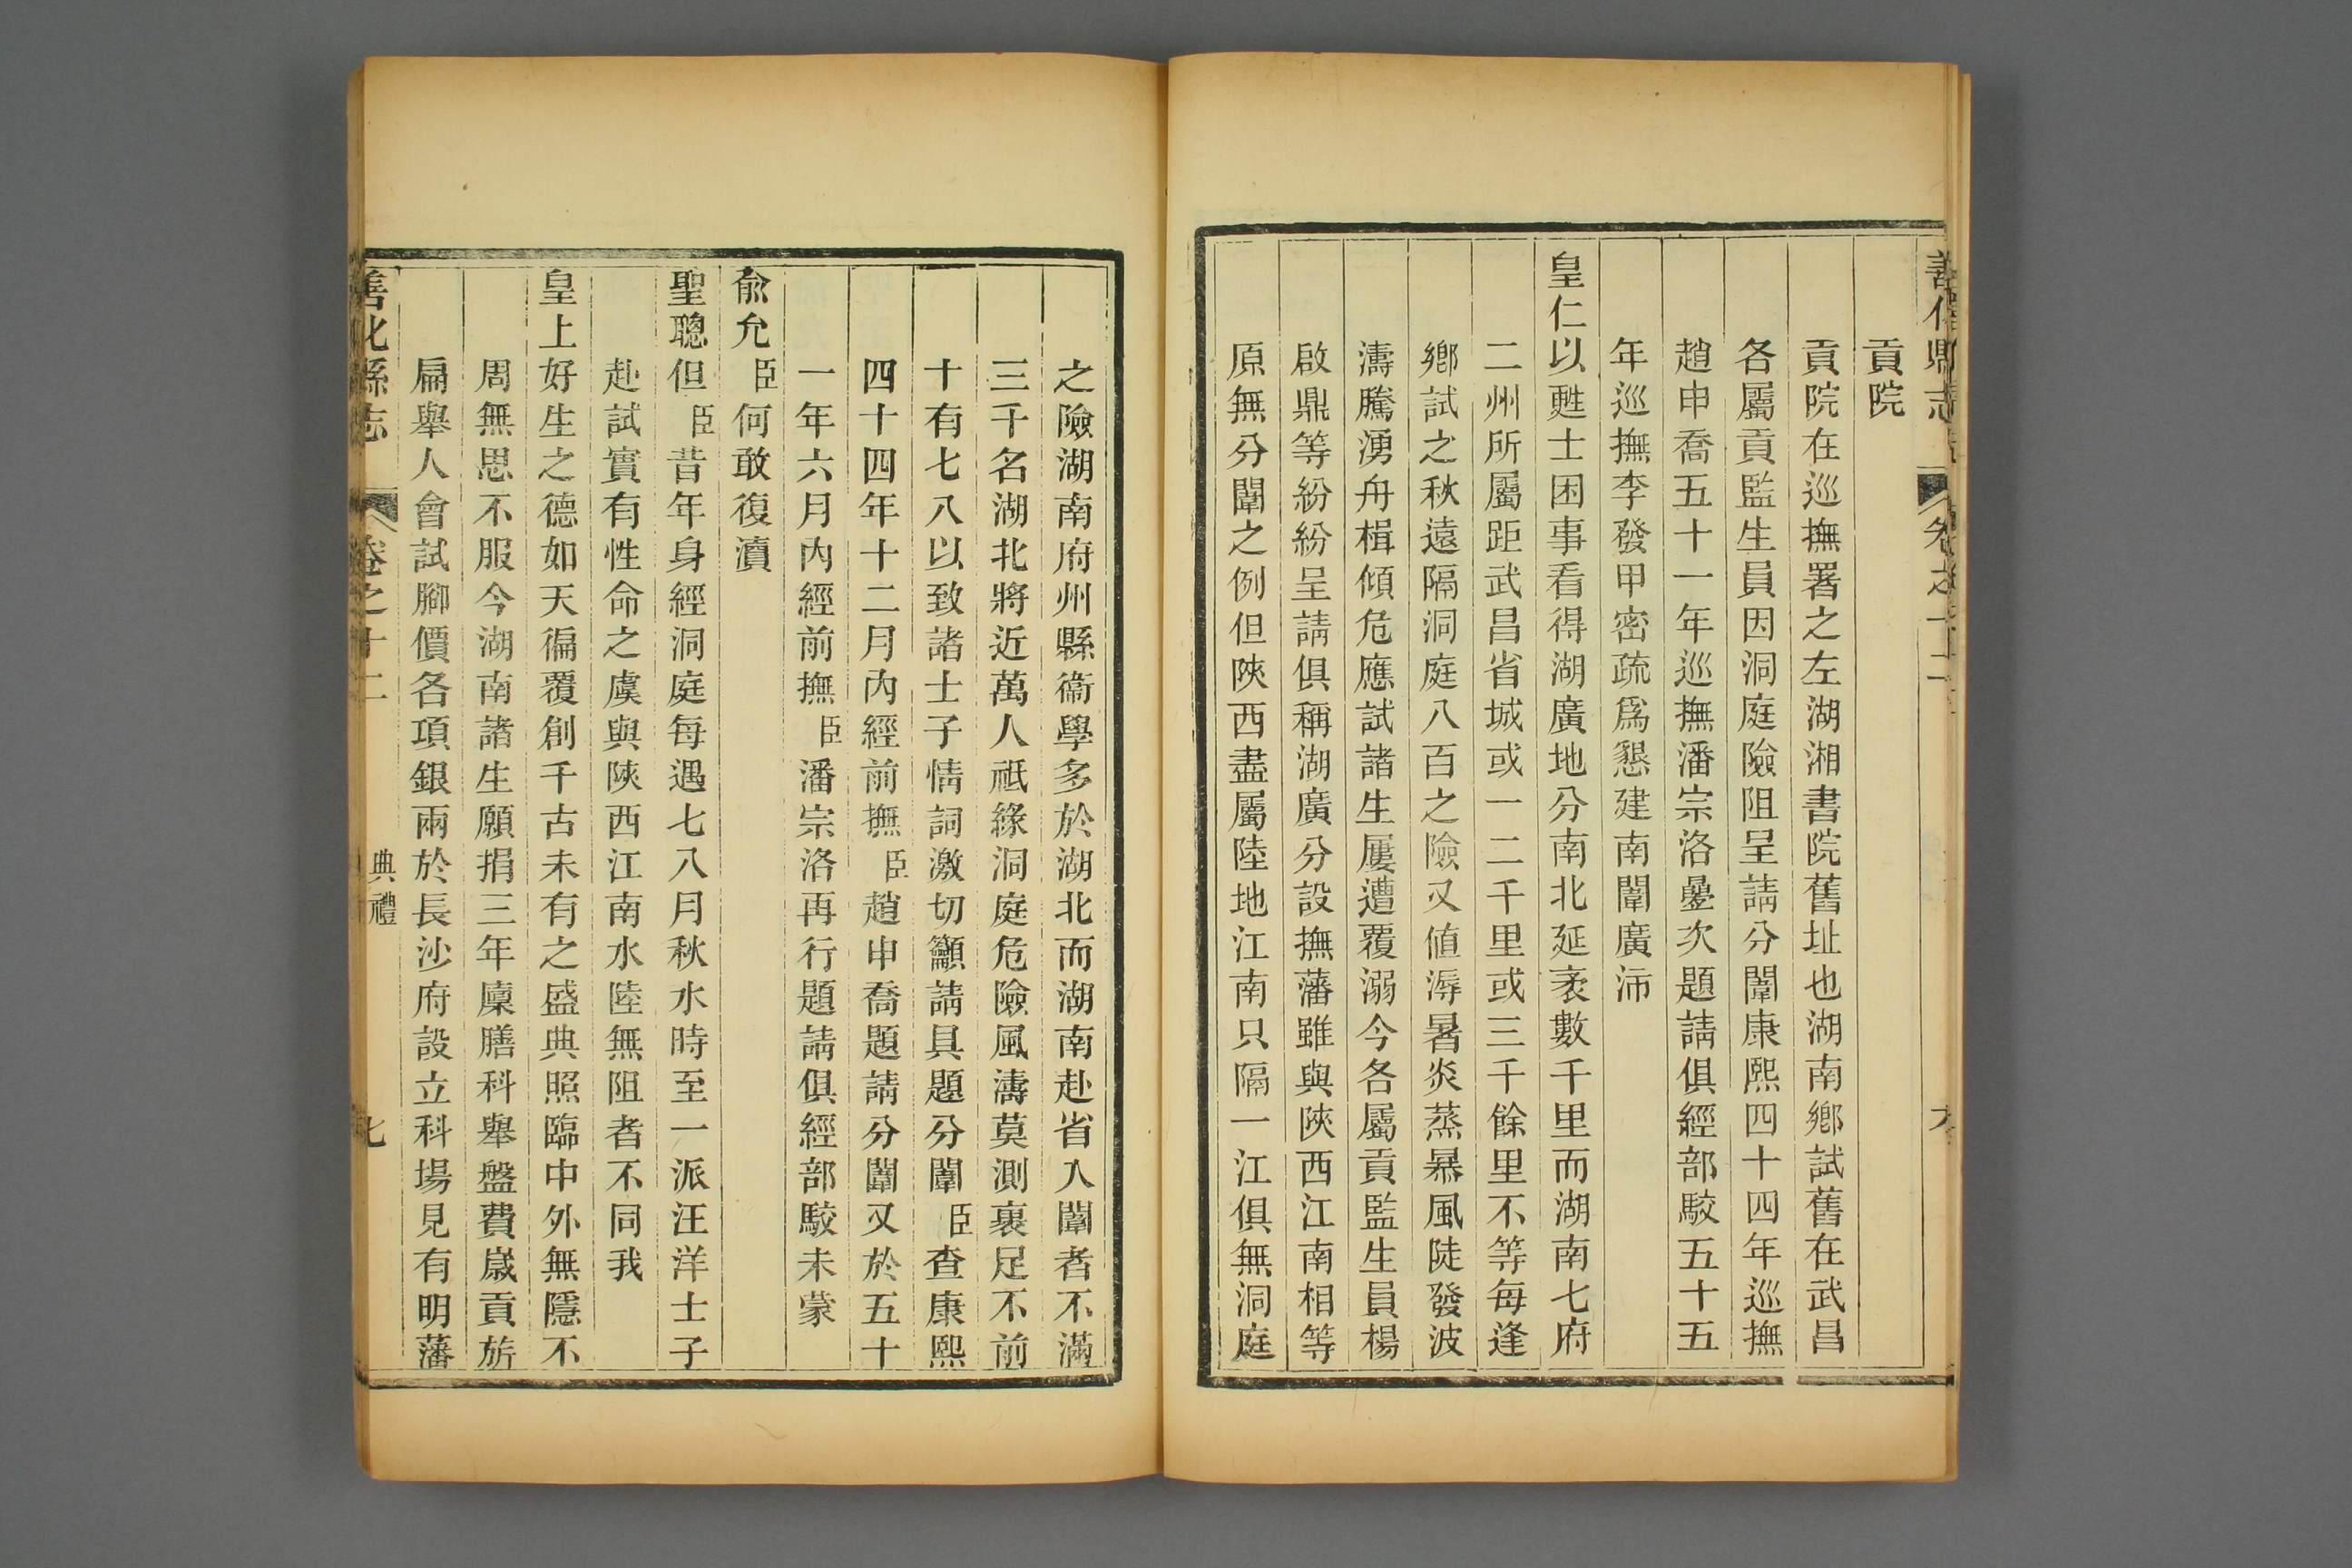 貢院
貢院在巡撫署之左湖湘書院舊址也湖南鄉試舊在武昌
各屬貢監生員因洞庭險阻呈請分闈康熙四十四年巡撫
趙申喬五十一年巡撫潘宗洛曡次題請俱經部駮五十五
年巡撫李發甲密疏爲懇建南闈廣沛
皇仁以甦士困事看得湖廣地分南北延袤數千里而湖南七府
二州所屬距武昌省城或一二千里或三千餘里不等每逢
鄉試之秋遠隔洞庭八百之險又値溽暑炎蒸暴風陡發波
濤騰湧舟楫傾危應試諸生屢遭覆溺今各屬貢監生員楊
啟鼎等紛紛呈請俱稱湖廣分設撫藩雖與陝西江南相等
原無分闈之例但陝西盡屬陸地江南只隔一江俱無洞庭
之險湖南府州縣衞學多於湖北而湖南赴省入闈者不滿
三千名湖北將近萬人祗緣洞庭危險風濤莫測裹足不前
十有七八以致諸士子情詞激切籲請具題分闈臣查康熙
四十四年十二月內經前撫臣趙申喬題請分闈又於五十
一年六月內經前撫臣潘宗洛再行題請俱經部駮未蒙
兪允臣何敢復瀆
聖聰但臣昔年身經洞庭每遇七八月秋水時至一派汪洋士子
赴試實有性命之虞與陝西江南水陸無阻者不同我
皇上好生之德如天徧覆創千古未有之盛典照臨中外無隱不
周無思不服今湖南諸生願捐三年廩膳科舉盤費歲貢旂
扁舉人會試腳價各項銀兩於長沙府設立科場見有明藩
善化縣志 卷之十二 典禮 七